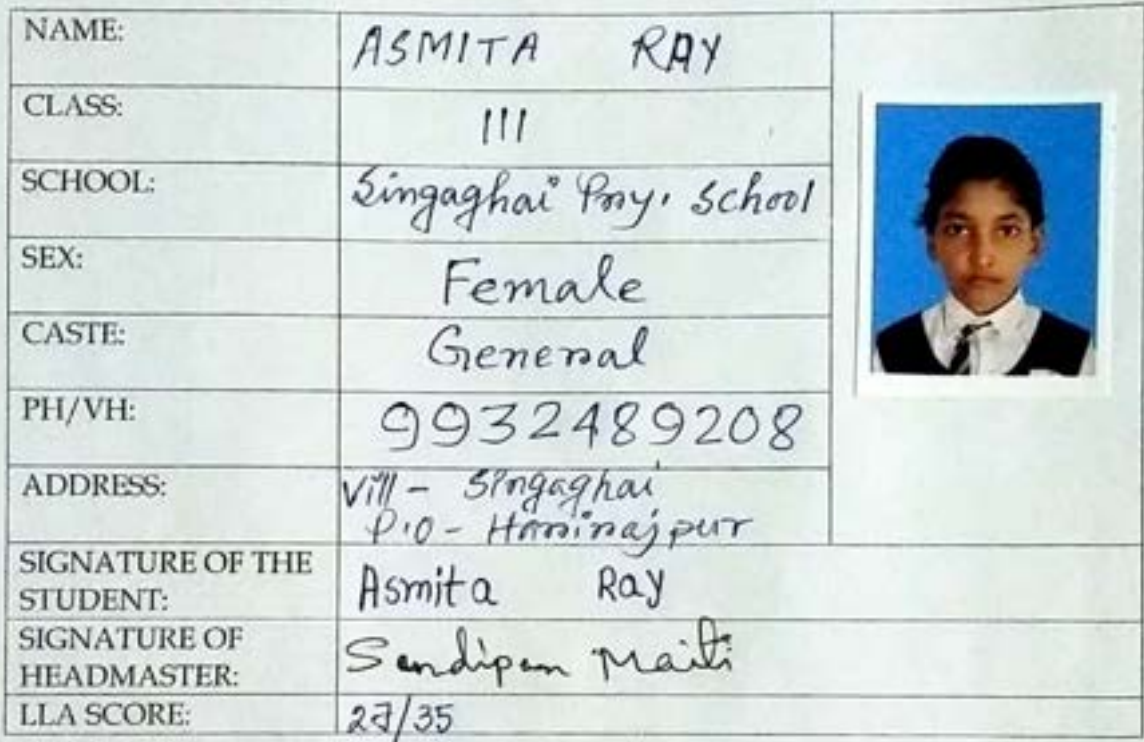 NAME: ASMITA RAY
CLASS: III
SCHOOL: Singaghai Pry. School
SEX: Female
CASTE: General
PH/VH: 9932489208
ADDRESS: Vill - Singaghai
P.O - Harirajpur
SIGNATURE OF THE
STUDENT: Asmita Ray
SIGNATURE OF
HEADMASTER: Sandipan Maiti
LLA SCORE: /35